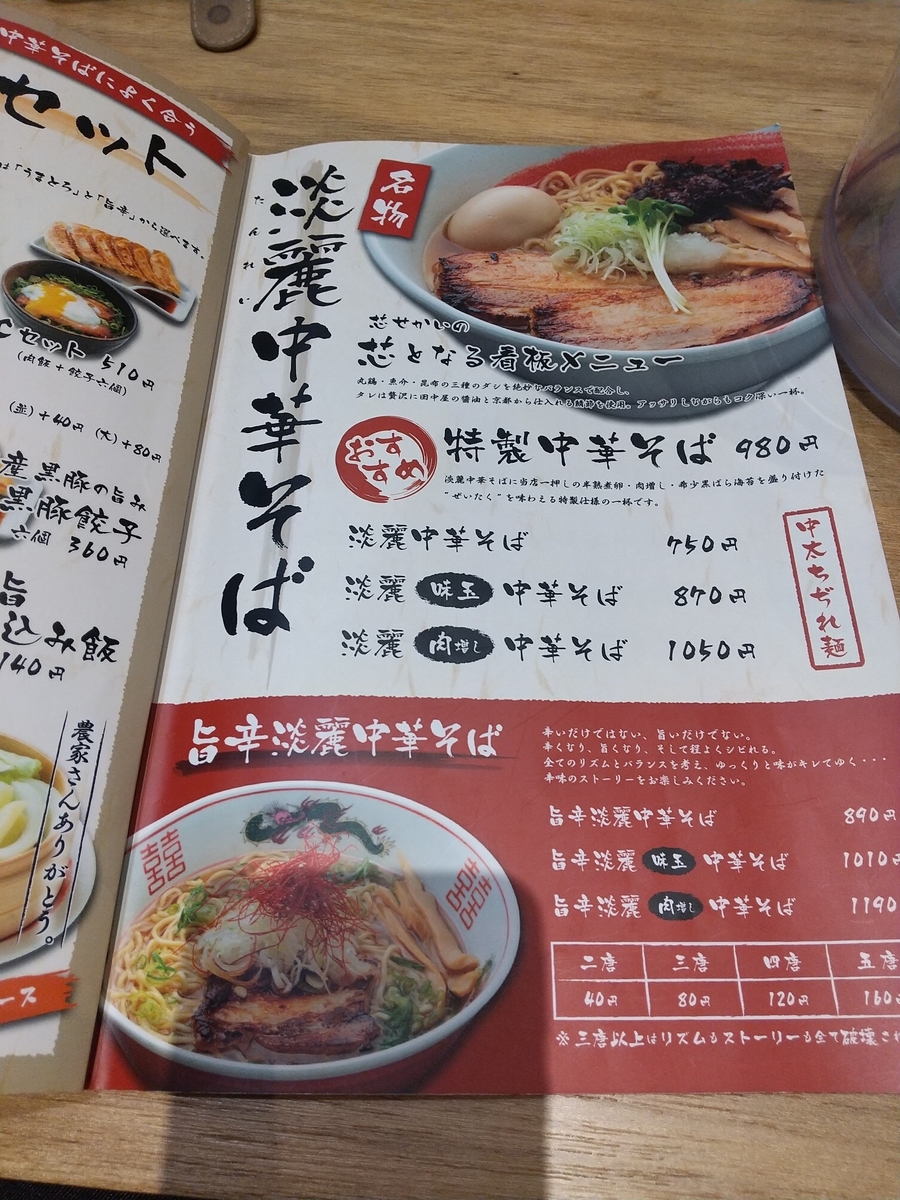 中華そばによく合う
セット
「うまとろ」と「旨辛」から選べます。
Cセット 510円
(肉飯+餃子六個)
(並)+40円 (大)+80
産黒豚の旨み
黒豚餃子
六個 360円
旨
込み飯
140円
農家さんありがとう。
ース
名物
淡麗中華そば
たんれい
芯せかいの
芯となる看板メニュー
丸鶏・魚介・昆布の三種のダシを絶妙なバランスで配合し、
タレは贅沢に田中屋の醤油と京都から仕入れる鯖節を使用。アッサリしながらもコク深い一杯。
おすすめ
特製中華そば 980円
淡麗中華そばに当店一押しの半熟煮卵・肉増し・希少黒ばら海苔を盛り付けた
“ぜいたく”を味わえる特製仕様の一杯です。
淡麗中華そば 750円
淡麗 味玉 中華そば 870円
淡麗 肉増し 中華そば 1050円
中太ちぢれ麺
旨辛淡麗中華そば
辛いだけではない、旨いだけでない。
辛くなり、旨くなり、そして程よくシビれる。
全てのリズムとバランスを考え、ゆっくりと味がキレてゆく・・・
辛味のストーリーをお楽しみください。
旨辛淡麗中華そば 890円
旨辛淡麗 味玉 中華そば 1010円
旨辛淡麗 肉増し 中華そば 1190
二唐 三唐 四唐 五唐
40円 80円 120円 160円
※三唐以上はリズムもストーリーも全て破壊さ